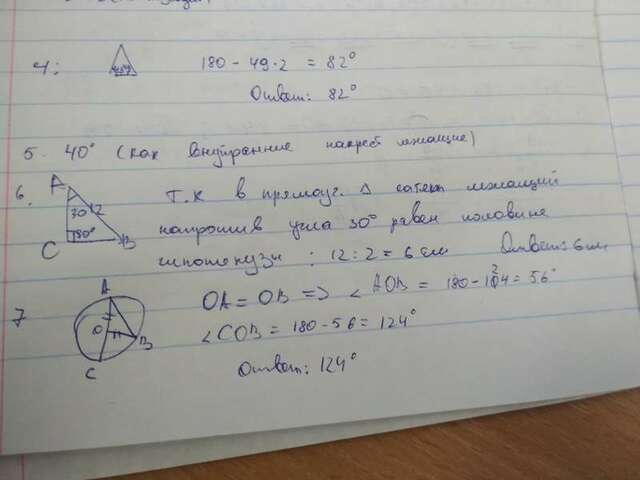 4: 180 - 49·2 = 82°
Ответ: 82°
5. 40° (как внутренние накрест лежащие)
6. A
30° 12
C 90° B
Т.к в прямоуг. Δ катет лежащий
напротив угла 30° равен половине
гипотенузы : 12:2 = 6 см Ответ: 6 см
7 A
O
B
C
OA = OB => ∠AOB = 180 - 124 = 56°
∠COB = 180 - 56 = 124°
Ответ: 124°